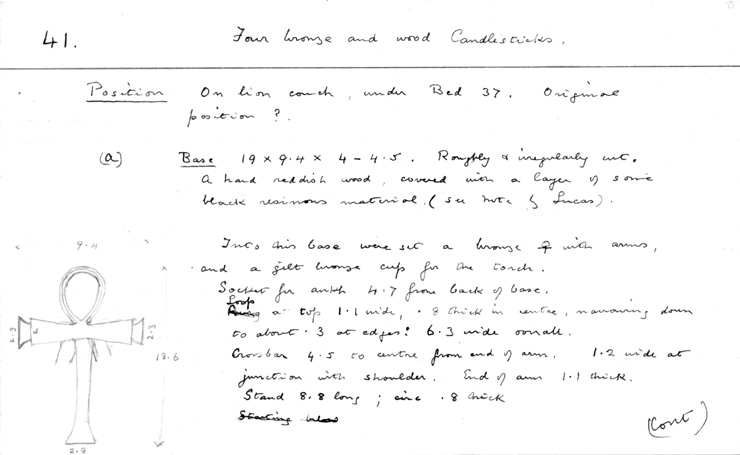 41. Four bronze and wood Candlesticks.
Position On lion couch, under Bed 37. Original
position ?.
(a) Base 19 x 9.4 x 4 - 4.5. Roughly & irregularly cut.
A hard reddish wood, covered with a layer of some
black resinous material. (see note by Lucas).
Into this base were set a bronze ☥ with arms,
and a gilt bronze cup for the torch.
Socket for ankh 4.7 from back of base.
Loop
at top 1.1 wide, .8 thick in centre, narrowing down
to about .3 at edges: 6.3 wide overall.
Crossbar 4.5 to centre from end of arm. 1.2 wide at
junction with shoulder. End of arm 1.1 thick.
Stand 8.8 long; circ .8 thick
Starting below
(Cont)
9.4
2.3
2.3
18.6
2.8